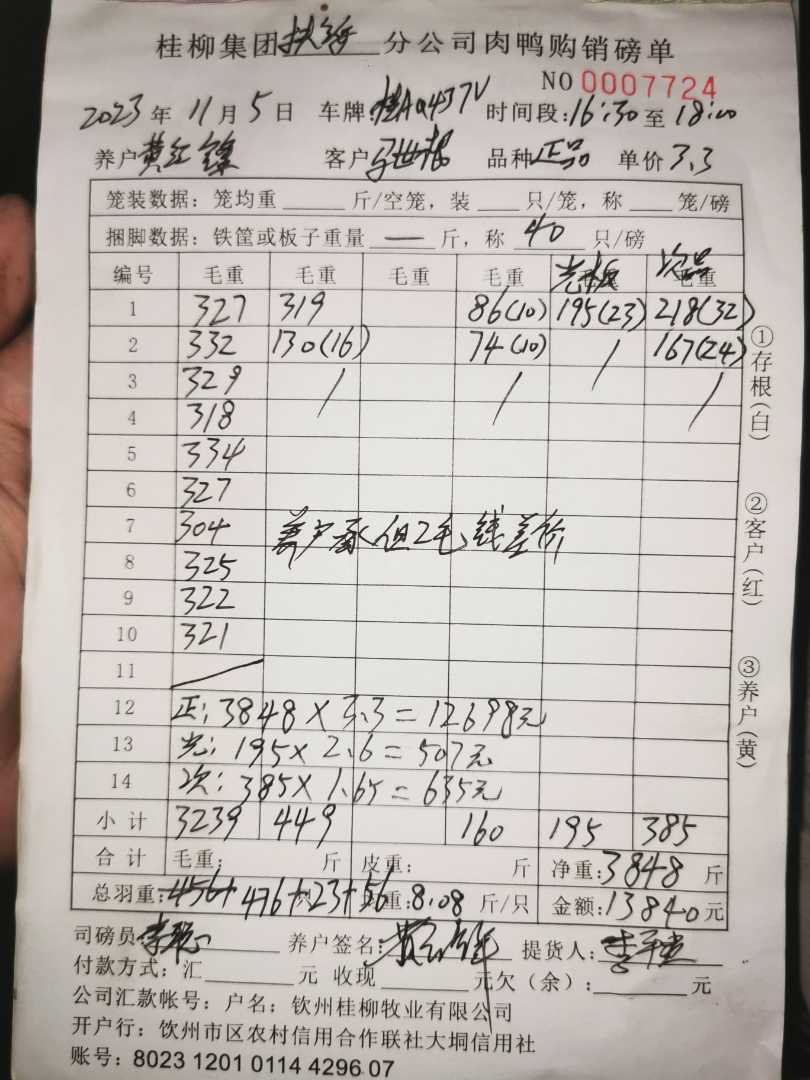 桂柳集团扶绥分公司肉鸭购销磅单
NO 0007724
2023年11月5日 车牌: 时间段:16:30至18:00
养户黄红 客户 品种正品 单价3.3
笼装数据：笼均重 斤/空笼，装 只/笼，称 笼/磅
捆脚数据：铁筐或板子重量 — 斤，称 40 只/磅
编号 毛重 毛重 毛重 毛重 光板 次品
1 327 319 86(10) 195(23) 218(32)
2 332 130(16) 74(10) / 167(24)
3 329 / / /
4 318
5 334
6 327
7 304 养户承担2毛钱差价
8 325
9 322
10 321
11
12 正: 3848×3.3=12698元
13 光: 195×2.6=507元
14 次: 385×1.65=635元
小计 3239 449 160 195 385
合计 毛重: 斤 皮重: 斤 净重:3848斤
总羽重: 456+ 476+23+56 重:8.08 斤/只 金额:13840元
司磅员: 养户签名: 提货人:
付款方式：汇 元 收现 元欠（余）: 元
公司汇款帐号：户名：钦州桂柳牧业有限公司
开户行：饮州市区农村信用合作联社大垌信用社
账号：8023 1201 0114 4296 07
①存根(白)
②客户(红)
③养户(黄)